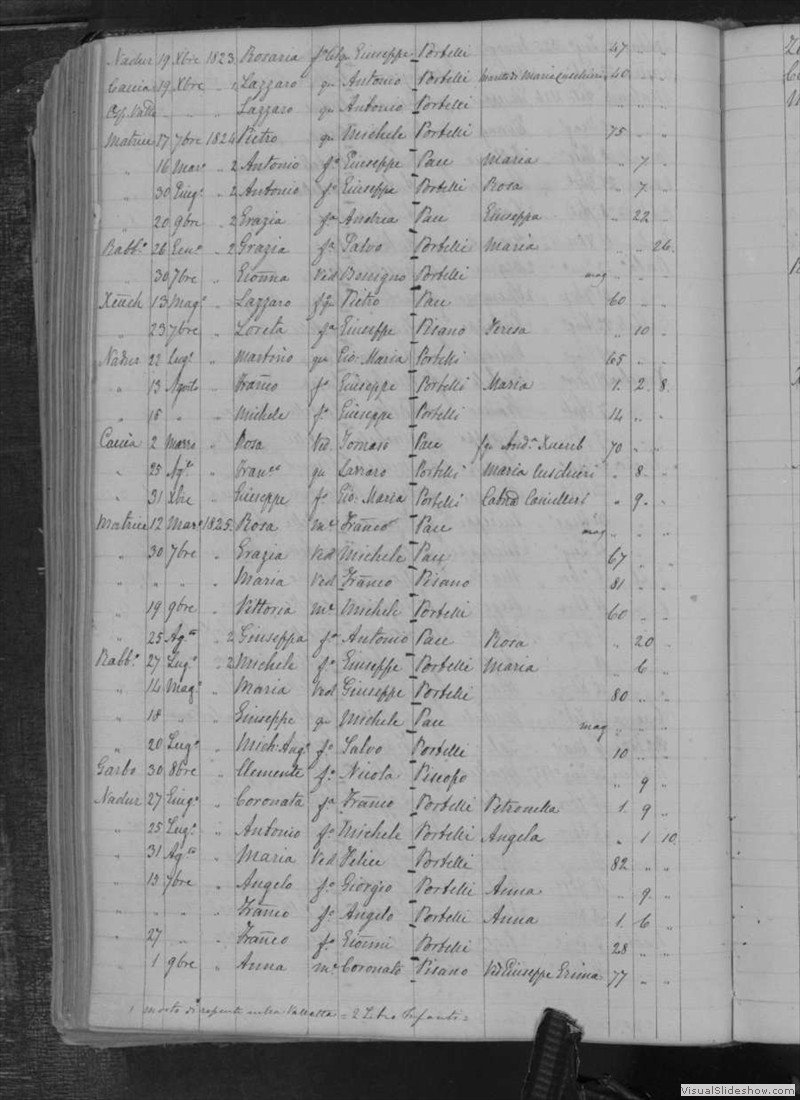 Nadur 19 Xbre 1823 Rosaria fa Giuseppe Portelli 47 " "
Caccia 19 Xbre " " Lazzaro qu Antonio Portelli marito di Maria 40 " "
" " " Lazzaro qu Antonio Portelli " " "
Matrice 17 7bre 1824 Pietro qu Michele Portelli 75 " "
" 16 Mar° " 2 Antonio fo Giuseppe Pace Maria " 7 "
" 30 Giug° " 2 Antonio fo Giuseppe Portelli Rosa " 7 "
" 20 9bre " 2 Grazia fa Andrea Pace Giuseppa " 22 "
Rabb° 26 Gen° " 2 Grazia fa Salvo Portelli Maria " " 26
" 30 7bre " Gioñna Ved Benigno Portelli mag " "
Xeuch 13 Mag° " Lazzaro fq Pietro Pace 60 " "
" 23 7bre " Loreta fa Giuseppe Pisano Teresa " 10 "
Nadur 22 Lug° " Martino qu Gio: Maria Portelli 65 " "
" 13 Agosto " Frañco fo Giuseppe Portelli Maria 1 2 8
" 15 " " Michele fo Giuseppe Portelli 14 " "
Caccia 2 Marzo " Rosa Ved. Tomaso Pace fa And.a Xuereb 70 " "
" 25 Ag.to " Fran.co qu Lazzaro Portelli Maria Cuschieri " 8 "
" 31 Xbre " Giuseppe fo Gio: Maria Portelli Camilleri " 9 "
Matrice 12 Mar° 1825 Rosa me Franco Pace mag " "
" 30 7bre " Grazia Ved Michele Pace 67 " "
" " " " Maria Ved Franco Pisano 81 " "
" 19 9bre " Vittoria me Michele Portelli 60 " "
" 25 Ag.to " 2 Giuseppa fa Antonio Pace Rosa " 20 "
Rabb° 27 Lug° " 2 Michele fo Giuseppe Portelli Maria " 6 "
" 14 Mag° " Maria Ved Giuseppe Portelli 80 " "
" 18 " " Giuseppe qu Michele Pace mag " "
" 20 Lug° " Mich: Ang° fo Salvo Portelli 10 " "
Garbo 30 8bre " Clemente fo Nicola Piscopo " 9 "
Nadur 27 Giug° " Coronata fa Franco Portelli Petronella 1 9 "
" 25 Lug° " Antonio fo Michele Portelli Angela " 1 10
" 31 Ag.to " Maria Ved Felice Portelli 82 " "
" 13 7bre " Angelo fo Giorgio Portelli Anna " 9 "
" " " " Frañco fo Angelo Portelli Anna 1 6 "
" 27 " " Frañco fo Gioñni Portelli 28 " "
" 1 9bre " Anna me Coronato Pisano Ved Giuseppe Grima 77 " "
1 morto di repente nella Valletta = 2 Libro Infanti =
VisualSlideshow.com